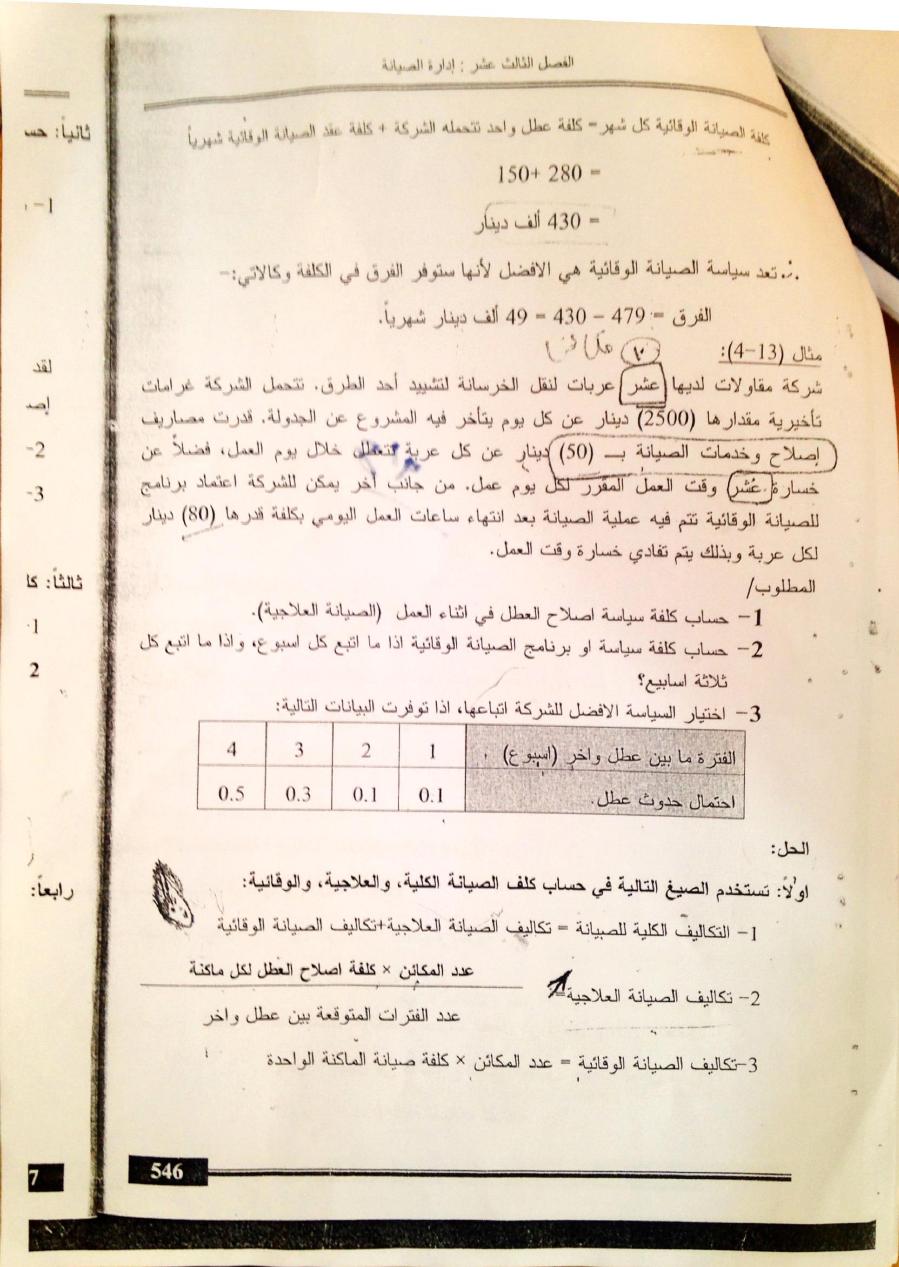 الفصل الثالث عشر : إدارة الصيانة
كلفة الصيانة الوقائية كل شهر= كلفة عطل واحد تتحمله الشركة + كلفة عقد الصيانة الوقائية شهرياً
= 280 +150
= 430 ألف دينار
∴ تعد سياسة الصيانة الوقائية هي الافضل لأنها ستوفر الفرق في الكلفة وكالاتي:-
الفرق = 479 – 430 = 49 ألف دينار شهرياً.
مثال (13-4):
١٠
شركة مقاولات لديها عشر عربات لنقل الخرسانة لتشييد أحد الطرق. تتحمل الشركة غرامات
تأخيرية مقدارها (2500) دينار عن كل يوم يتأخر فيه المشروع عن الجدولة. قدرت مصاريف
إصلاح وخدمات الصيانة بـــ (50) دينار عن كل عربة تتعطل خلال يوم العمل، فضلاً عن
خسارة عُشر وقت العمل المقرر لكل يوم عمل. من جانب آخر يمكن للشركة اعتماد برنامج
للصيانة الوقائية تتم فيه عملية الصيانة بعد انتهاء ساعات العمل اليومي بكلفة قدرها (80) دينار
لكل عربة وبذلك يتم تفادي خسارة وقت العمل.
المطلوب/
1- حساب كلفة سياسة اصلاح العطل في اثناء العمل (الصيانة العلاجية).
2- حساب كلفة سياسة او برنامج الصيانة الوقائية اذا ما اتبع كل اسبوع، واذا ما اتبع كل
ثلاثة اسابيع؟
3- اختيار السياسة الافضل للشركة اتباعها، اذا توفرت البيانات التالية:
الفترة ما بين عطل واخر (اسبوع) 1 2 3 4
احتمال حدوث عطل. 0.1 0.1 0.3 0.5
الحل:
اولاً: تستخدم الصيغ التالية في حساب كلف الصيانة الكلية، والعلاجية، والوقائية:
1- التكاليف الكلية للصيانة = تكاليف الصيانة العلاجية+تكاليف الصيانة الوقائية
عدد المكائن × كلفة اصلاح العطل لكل ماكنة
2- تكاليف الصيانة العلاجية=
عدد الفترات المتوقعة بين عطل واخر
3-تكاليف الصيانة الوقائية = عدد المكائن × كلفة صيانة الماكنة الواحدة
546
ثانياً: حس
1-
لقد
إص
2-
3-
ثالثاً: كا
1
2
رابعاً:
7